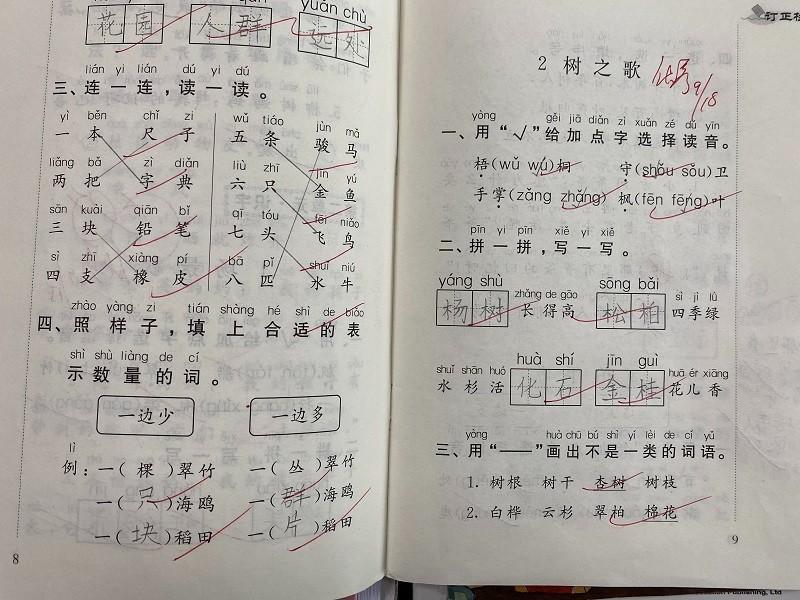 花园 人群 远处
yuǎn chù
lián yi lián dú yi dú
三、连一连，读一读。
yì běn chǐ zi
一本 尺子
liǎng bǎ zì diǎn
两把 字典
sān kuài qiān bǐ
三块 铅笔
sì zhī xiàng pí
四支 橡皮
wǔ tiáo jùn mǎ
五条 骏马
liù zhī jīn yú
六只 金鱼
qī tóu fēi niǎo
七头 飞鸟
bā pǐ shuǐ niú
八匹 水牛
zhào yàng zi tián shàng hé shì de biǎo
四、照样子，填上合适的表
shì shù liàng de cí
示数量的词。
一边少 一边多
lì
例：一（棵）翠竹 一（丛）翠竹
一（只）海鸥 一（群）海鸥
一（块）稻田 一（片）稻田
8
订正
2 树之歌
9/18
yòng gěi jiā diǎn zì xuǎn zé dú yīn
一、用“√”给加点字选择读音。
梧（wǔ wú）桐 守（shǒu sǒu）卫
手掌（zǎng zhǎng） 枫（fēn fēng）叶
pīn yi pīn xiě yi xiě
二、拼一拼，写一写。
yáng shù zhǎng de gāo sōng bǎi sì jì lǜ
杨树长得高 松柏四季绿
shuǐ shān huó huà shí jīn guì huā ér xiāng
水杉活化石 金桂花儿香
yòng huà chū bú shì yí lèi de cí yǔ
三、用“——”画出不是一类的词语。
1. 树根 树干 杏树 树枝
2. 白桦 云杉 翠柏 棉花
9
Publishing, Ltd